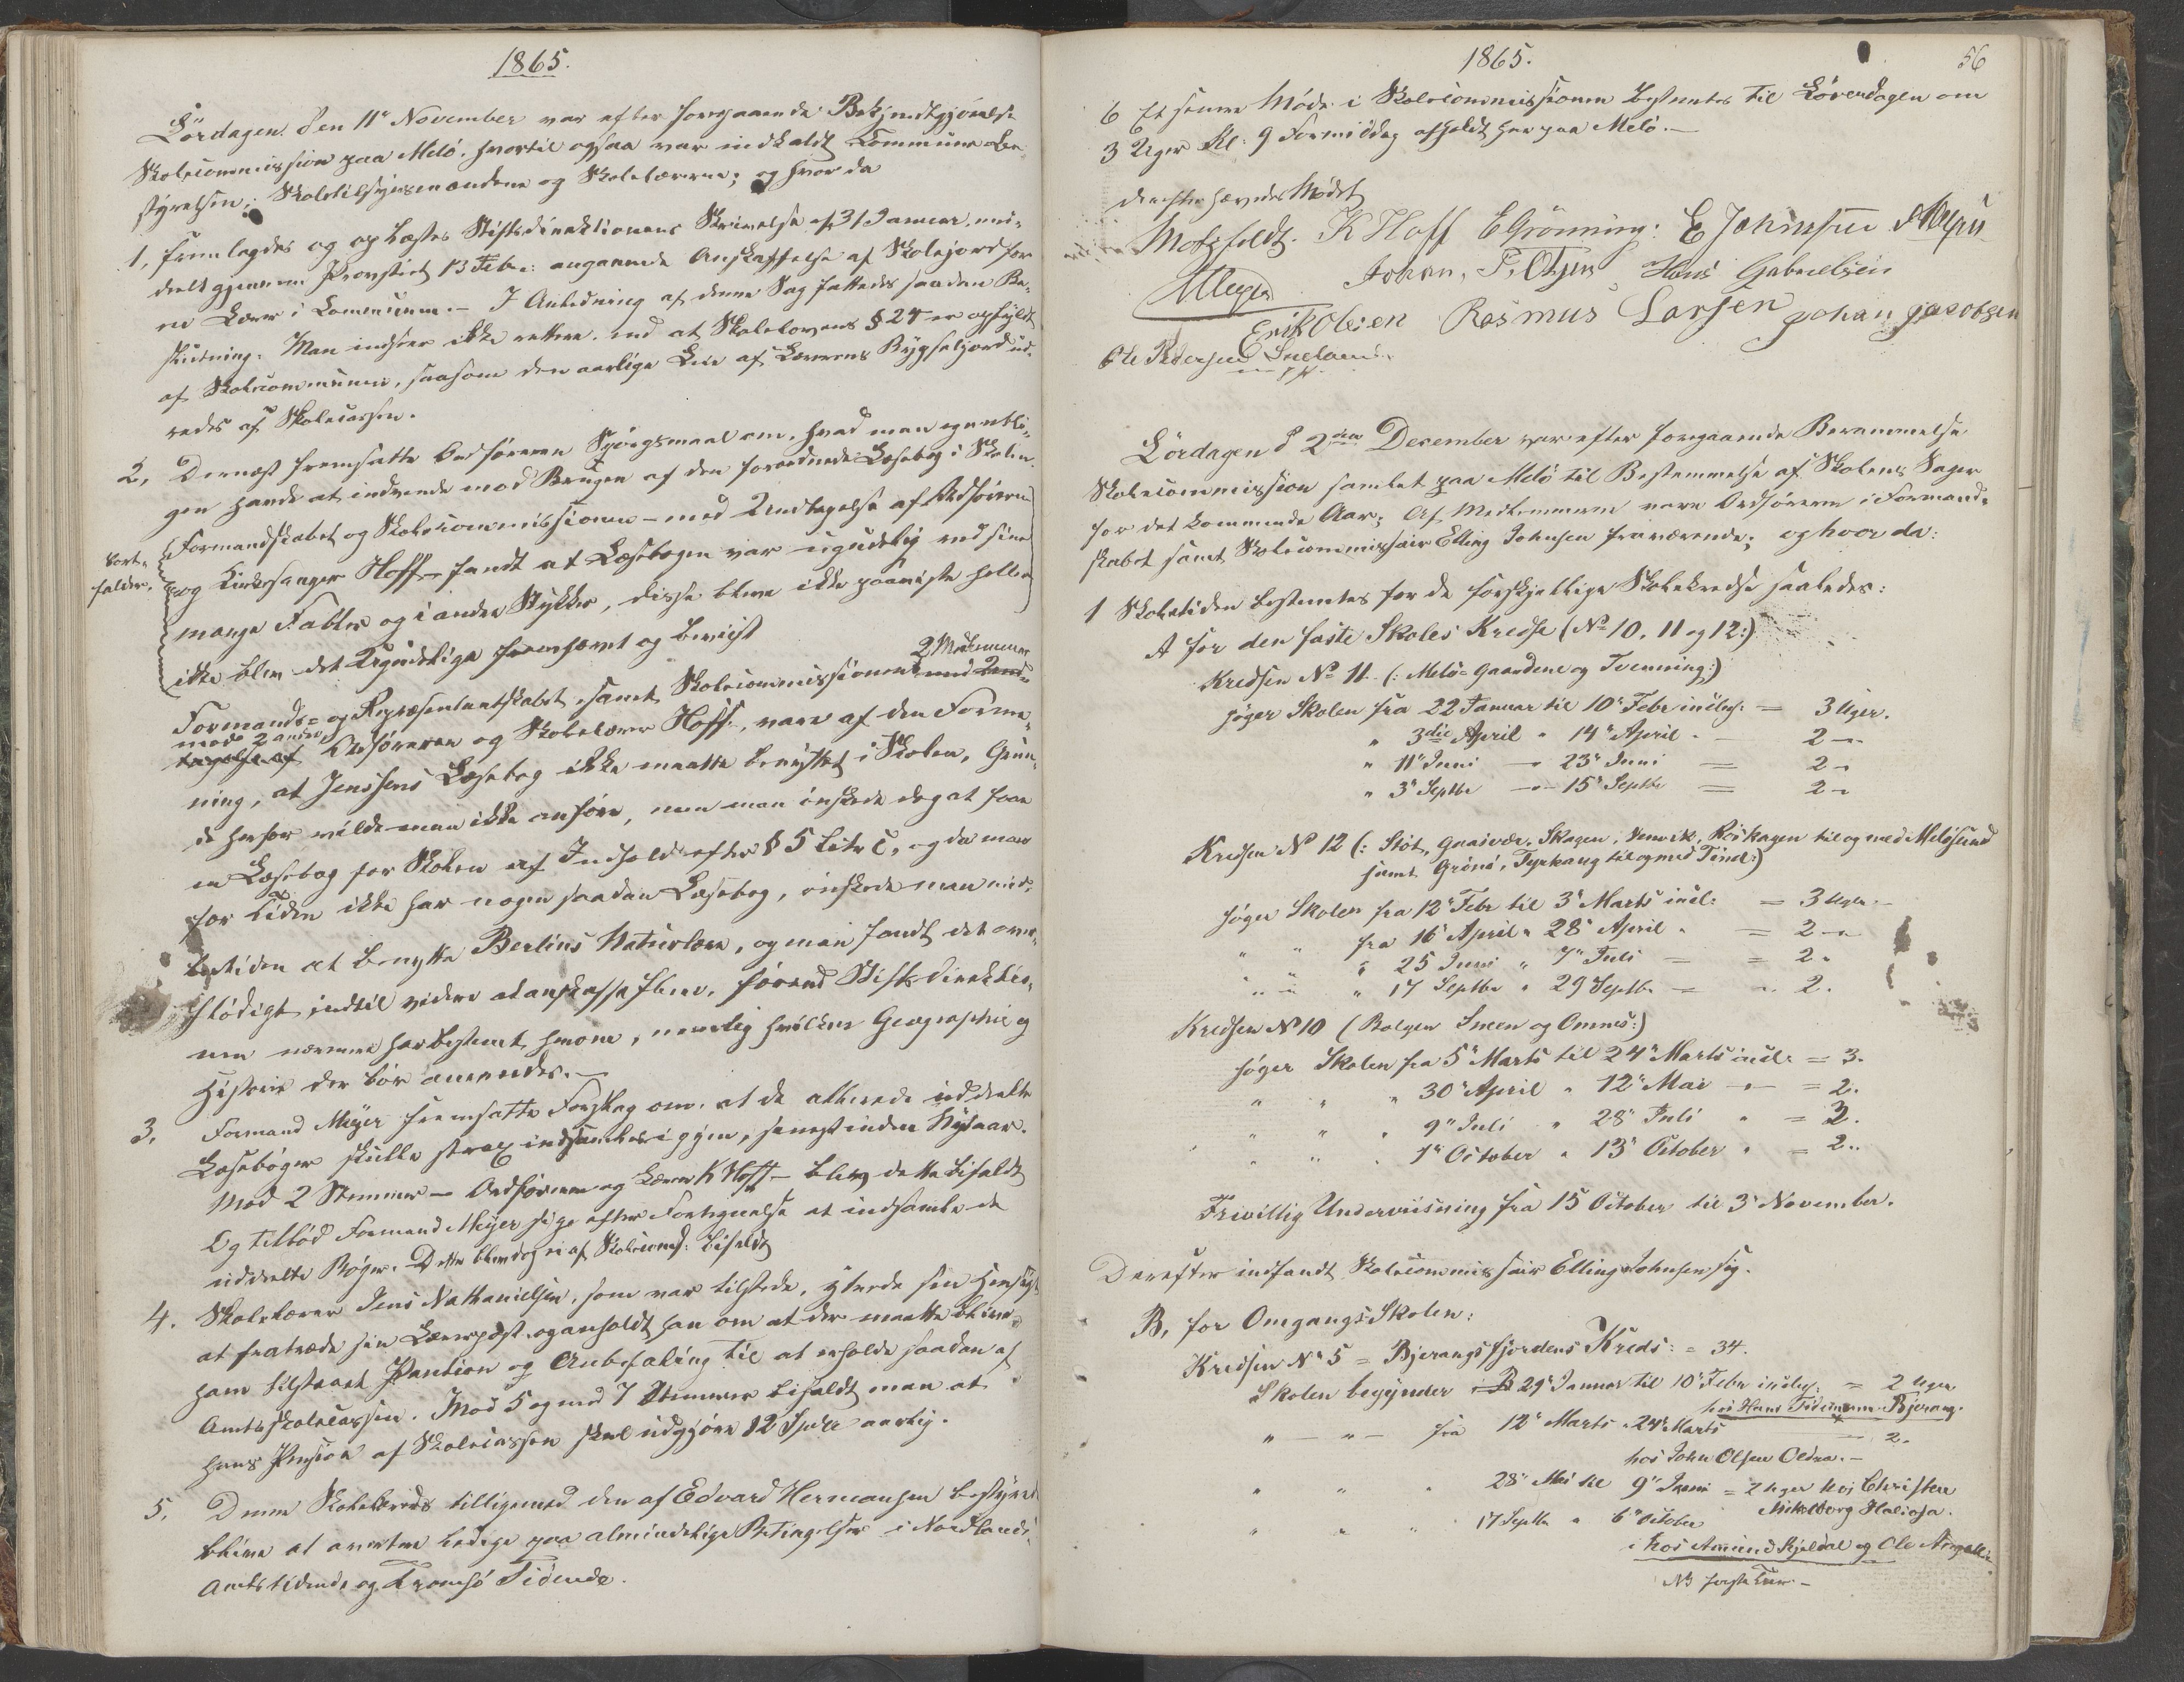 1865.
Lördagen den 11te November var efter foregaaende Bekjendtgjørelse
Skolecommission paa Melö, hvortil ogsaa var indkaldt Kommunebe-
styrelsen, Skoletilsynsmændene og Skolelærerne; og hvor da
1, fremlagdes og oplæstes Stiftsdirektionens Skrivelse af 31 Januar, med-
deelt gjennem Provstiet 13 Febr: angaaende Anskaffelse af Skolejord for
en Lærer i Communen. – I Anledning af denne Sag fattedes saadan Be-
slutning: Man indseer ikke rettere, end at Skolelovens § 24 er opfyldt
af Skolecommunen, saasom den aarlige Leie af Lærerens Bygseljord ud-
redes af Skolecassen.
2, Dernæst fremsatte Ordföreren Spörgsmaal om, hvad man egentli-
gen havde at indvende mod Brugen af den forordnede Læsebog i Skolen.
Formandskabet og Skolecommissionen – med Undtagelse af Ordföreren
og Kirkesanger Hoff – fandt at Læsebogen var ugudelig ved sine
mange Fabler og i andre Stykker, disse bleve ikke paaviste heller
ikke blev det Ugudelige fremhævet og beviist
bort-
falder.
2 Medlemmer
Formands- og Repræsentantskabet, samt Skolecommissionen med Und-
med 2 andre,
tagelse af Ordföreren og Skolelærer Hoff, vare af den Forme-
ning, at Jenssens Læsebog ikke maatte benyttes i Skolen, Grun-
de herfor vilde man ikke anföre, men man önskede dog at faae
en Læsebog for Skolen af Indhold efter § 5 Litr C, og da man
for Tiden ikke har nogen saadan Læsebog, önskede man mid-
lertiden at benytte Berlins Naturlære, og man fandt det over-
flödigt indtil videre at anskaffe flere, förend Stiftsdirektio-
nen nærmere har bestemt herom, nemlig hvilken Geographie og
Historie der bör anvendes. –
3, Formand Meyer fremsatte Forslag om, at de allerede uddeelte
Læsebøger skulle strax indsamles igjen, senest inden Nytaar.
Mod 2 Stemmer – Ordföreren og Lærer K Hoff – blev dette bifaldt
Og tilböd Formand Meyer sig efter Fortegnelse at indsamle de
uddeelte Bøger. Dette blev dog ei af Skolecomms: bifaldt
4. Skolelærer Jens Nathanielsen, som var tilstede, yttrede sin Hensigt
at fratræde sin Lærerpost og anholdt han om at der maatte blive
ham tilstaaet Pension og Anbefaling til at erholde saadan af
Amtsskolecassen. Mod 5 og med 7 Stemmer bifaldt man at
hans Pension af Skolecassen skal udgjöre 12 Spdlr aarlig.
5, Denne Skolekreds tilligemed den af Edvard Hermansen bestyrede
blive at avertere ledige paa almindelige Betingelser i Nordlands
Amtstidende og Tromsö Tidende.
1865.
56
6 Et senere Möde i Skolecommissionen bestemtes til Löverdagen om
3 Uger Kl: 9 Formiddag afholdt her paa Melö. –
Derefter hævedes Mödet
Motzfeldt. K Hoff E Grönning: E Johnsen
Meyer Johan P. Olsen Hans Gabrielsen
Erik Olesen Rasmus Larsen Johan Jacobsen
Ole Pedersen
Lördagen d 2den December var efter foregaaende Berammelse
Skolecommission samlet paa Melö til Bestemmelse af Skolens Sager
for det kommende Aar; Af Medlemmerne vare Ordföreren i Formand-
skabet samt Skolecommissair Elling Johnsen fraværende; og hvor da:
1 Skoletiden bestemtes for de forskjellige Skolekredse saaledes:
A for den faste Skoles Kredse (No 10, 11 og 12:)
Kredsen No 11. (: Melö-Gaardene og Tvenning:)
söger Skolen fra 22 Januar til 10de Febr inclus. = 3 Uger.
" 3die April " 14de April – 2 –
" 11te Juni – 23de Juni = 2 –
" 3de Septbr – 15de Septbr = 2 –
Kredsen No 12 (: Stöt, Gaasvær, Skagen, Röskagen til og med Melösund
samt Grönö, Fyrkaug til og med Tönd:)
söger Skolen fra 12te Febr til 3de Marts incl: = 3 Uger. –
" " fra 16de April " 28de April " = 2 –
" " " 25 Juni " 7de Juli – = 2 "
" " " 17 Septbr " 29 Septbr – " 2.
Kredsen No 10 (Bolgen Smeen og Ommes:)
söger Skolen fra 5te Marts til 24de Marts incl: = 3.
" " " 30te April " 12te Mai – = 2.
" " " 9de Juli " 28de Juli " = 3.
" " " 1ste October " 13de October " = 2..
Frivillig Underviisning fra 15 October til 3de November.
Derefter indfandt Skolecommissair Elling Johnsen sig.
B, for Omgangs-Skolen:
Kredsen No 5 = Bjerangsfjordens Kreds: = 34.
Skolen begynder 29de Januar til 10de Febr inclus. = 2 Uger
hos Hans Bjerang.
" – " – fra 12te Marts " 24de Marts – 2.
hos John Olsen Oldra. –
" " " 28de Mai til 9de Juni = 2 Uger hos Christen
Mikelborg Haliosa.
" " " 17 Septbr " 6te October
i hos Amund Kjeldal og Ole
NB